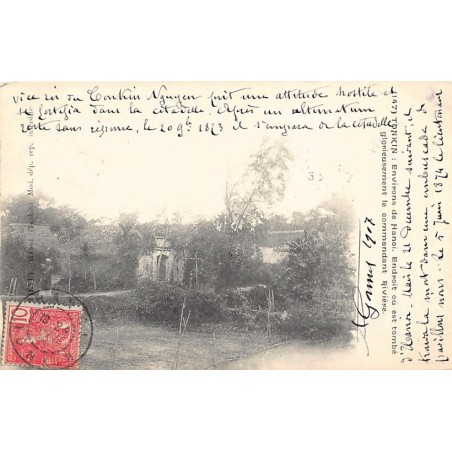 vice roi du Tonkin Nguyen prit une attitude hostile et
se fortifia dans la citadelle. Après un ultimatum
resté sans réponse, le 20 9bre 1873 il s'empara de la citadelle
d'Hanoi. Mais le 21 décembre suivant, il
trouva la mort dans une embuscade de
pavillons noirs. Le 5 juin 1874 le lieutenant
1471 TONKIN : Environs de Hanoi. Endroit où est tombé
glorieusement le commandant Rivière.
1907
10